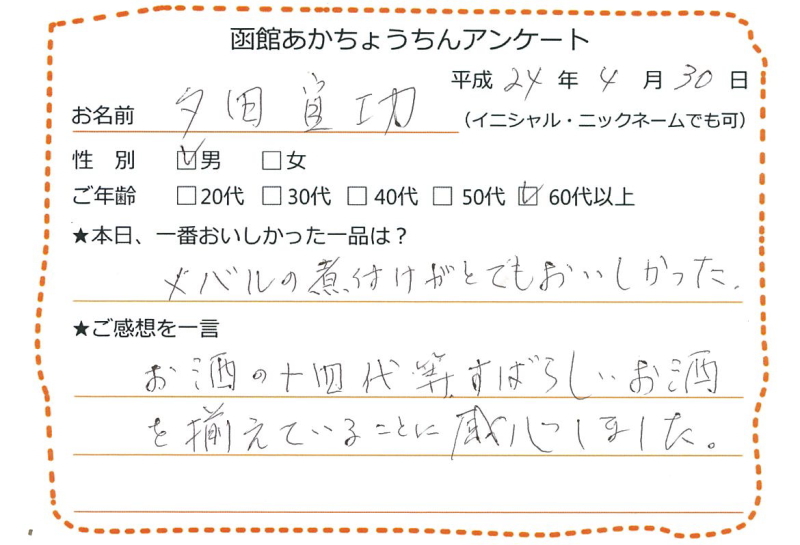 函館あかちょうちんアンケート
平成 24 年 4 月 30 日
お名前 夕田宣功 (イニシャル・ニックネームでも可)
性 別 ☑男 □女
ご年齢 □20代 □30代 □40代 □50代 ☑60代以上
★本日、一番おいしかった一品は？
メバルの煮付けがとてもおいしかった.
★ご感想を一言
お酒の十四代等すばらしいお酒
を揃えていることに感心しました。